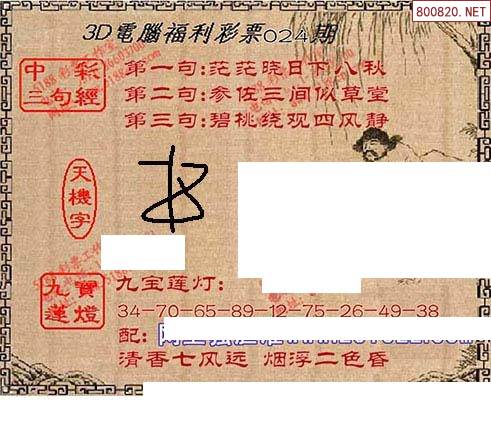 800820.NET
3D電腦福利彩票024期
中彩
三句經
第一句:茫茫晓日下八秋
第二句:参佐三间似草堂
第三句:碧桃绕观四风静
天機字
九寶
蓮燈
九宝莲灯:
34-70-65-89-12-75-26-49-38
配:
清香七风远 烟浮二色昏